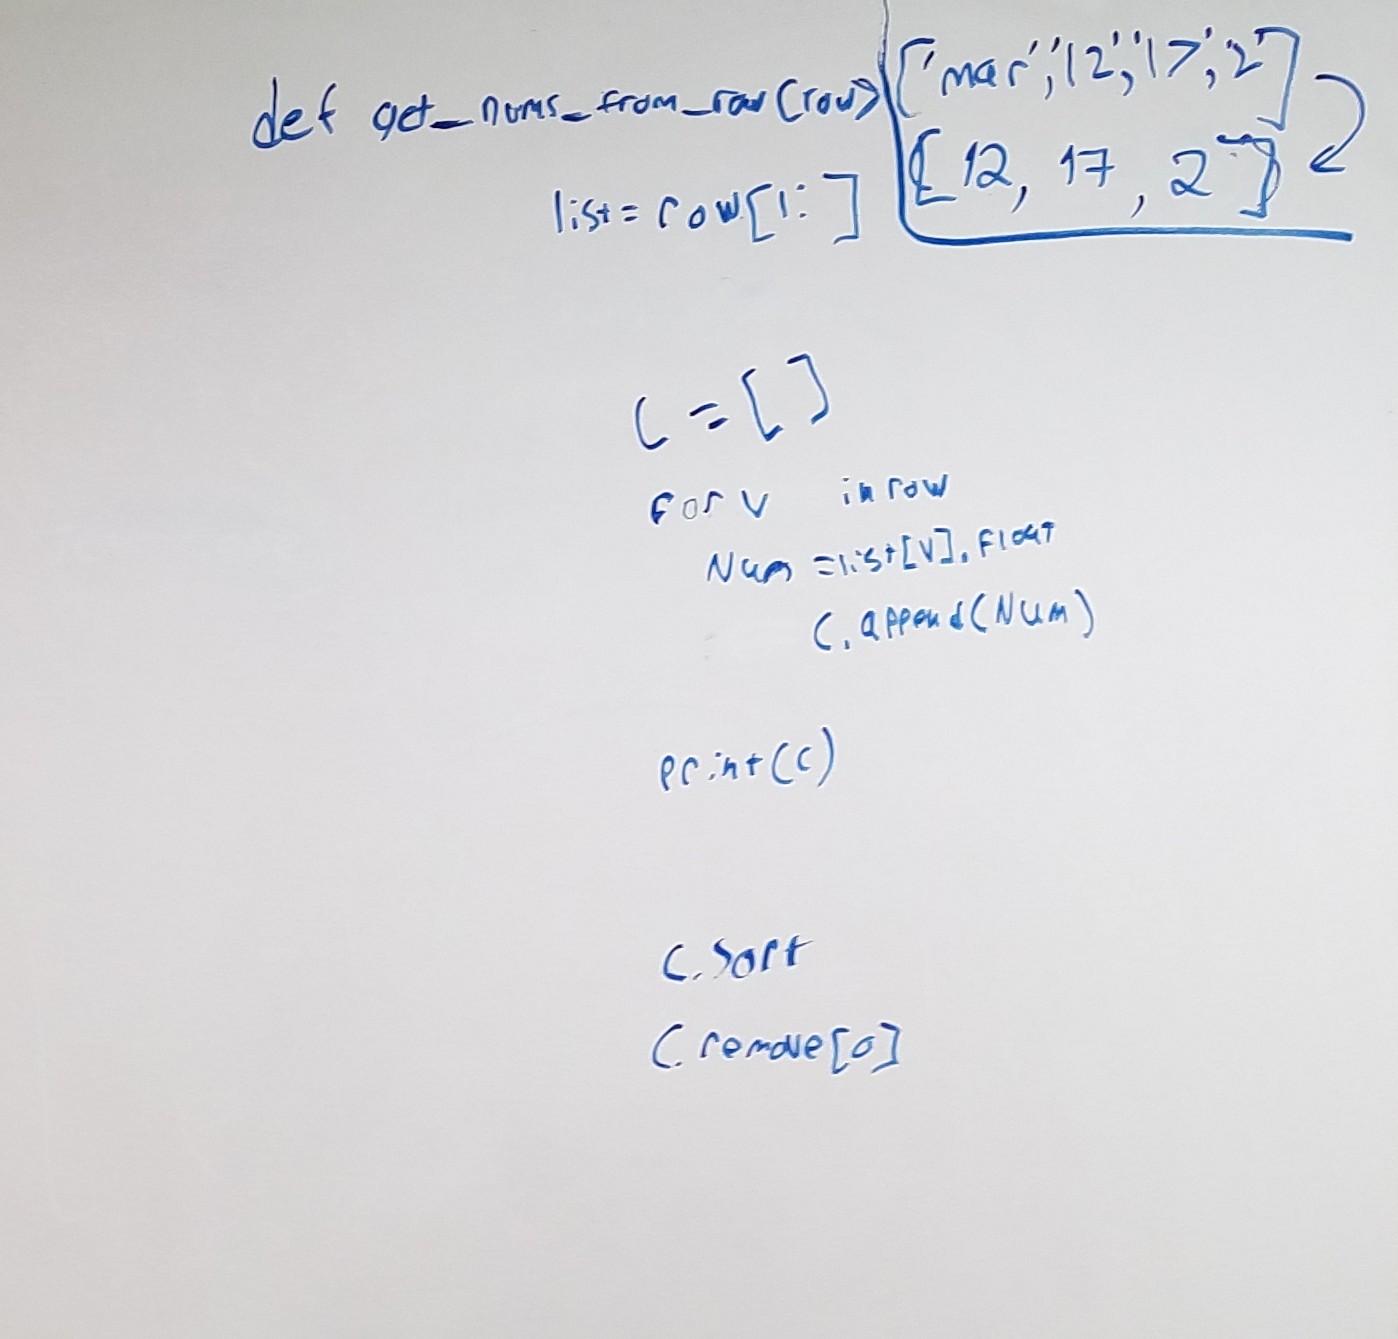 def get_nums_from_row(row)
['mar','12','17','2']
[12, 17, 2]
list=row[1:]
C=[]
For v in row
Num=list[v].Float
C.append(Num)
print(C)
C.Sort
C.remove[0]